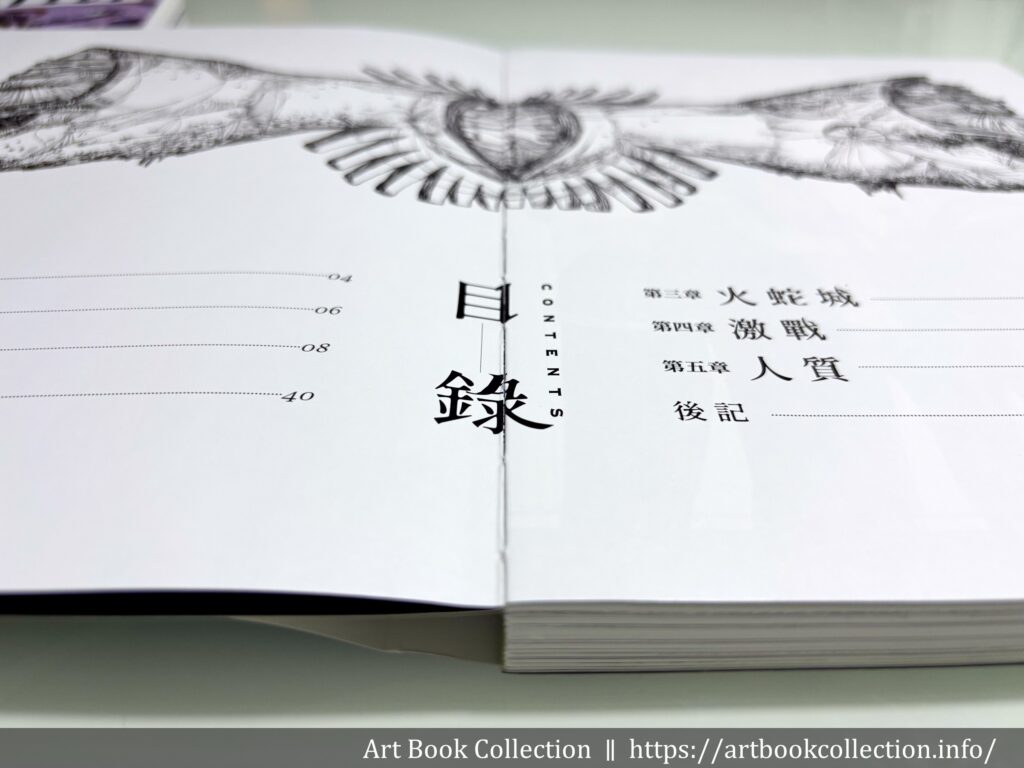 04
06
08
40
目錄
CONTENTS
第三章 火蛇城
第四章 激戰
第五章 人質
後記
Art Book Collection || https://artbookcollection.info/